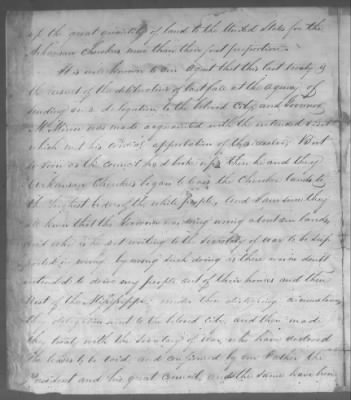 of the great quantity of land to the United States for the
Arkansas Cherokees more than their just proportion.
It is well known to our Agent that this last treaty is
the result of the deliberations of last fall at the agency of
sending on a delegation to the beloved City and Governor
McMinn was made acquainted with the intended
which met his approbation of this
so soon as the council had broke up then he and they
Arkansas Cherokees began to lease the Cherokee lands to
the highest bidders of the white people, and I am sure they
know that the Governor was doing wrong about our lands
and why is he not writing to the Secretary of war to be
in wrong by wrong such doing is there was no doubt
intended to drive my people out of their homes and then
West of the Mississippi under these distressing
they delegation went to the beloved city and then made
they treaty with the Secretary of War who have declared
the leases to be void and confirmed by our Father the
President and his great council and the same have been